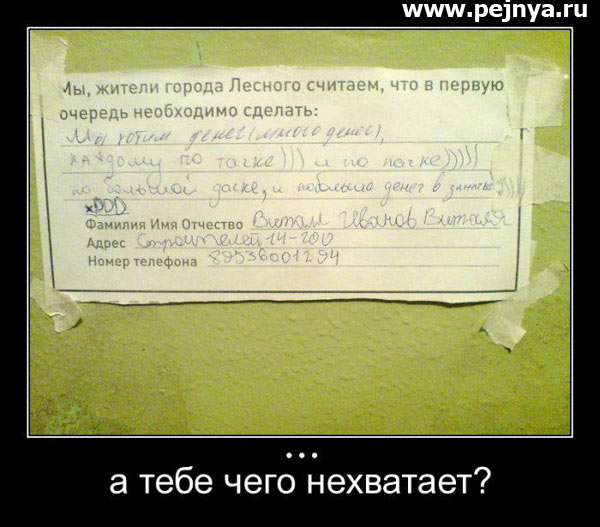 www.pejnya.ru
Мы, жители города Лесного считаем, что в первую
очередь необходимо сделать:
Мы хотим денег(много денег),
каждому по тачке))) и по пачке)))))
по большой доске, и побольше денег в
xDDD
Фамилия Имя Отчество Виталя Иванов Виталя
Адрес Строителей 14-200
Номер телефона 89536001294
...
а тебе чего нехватает?